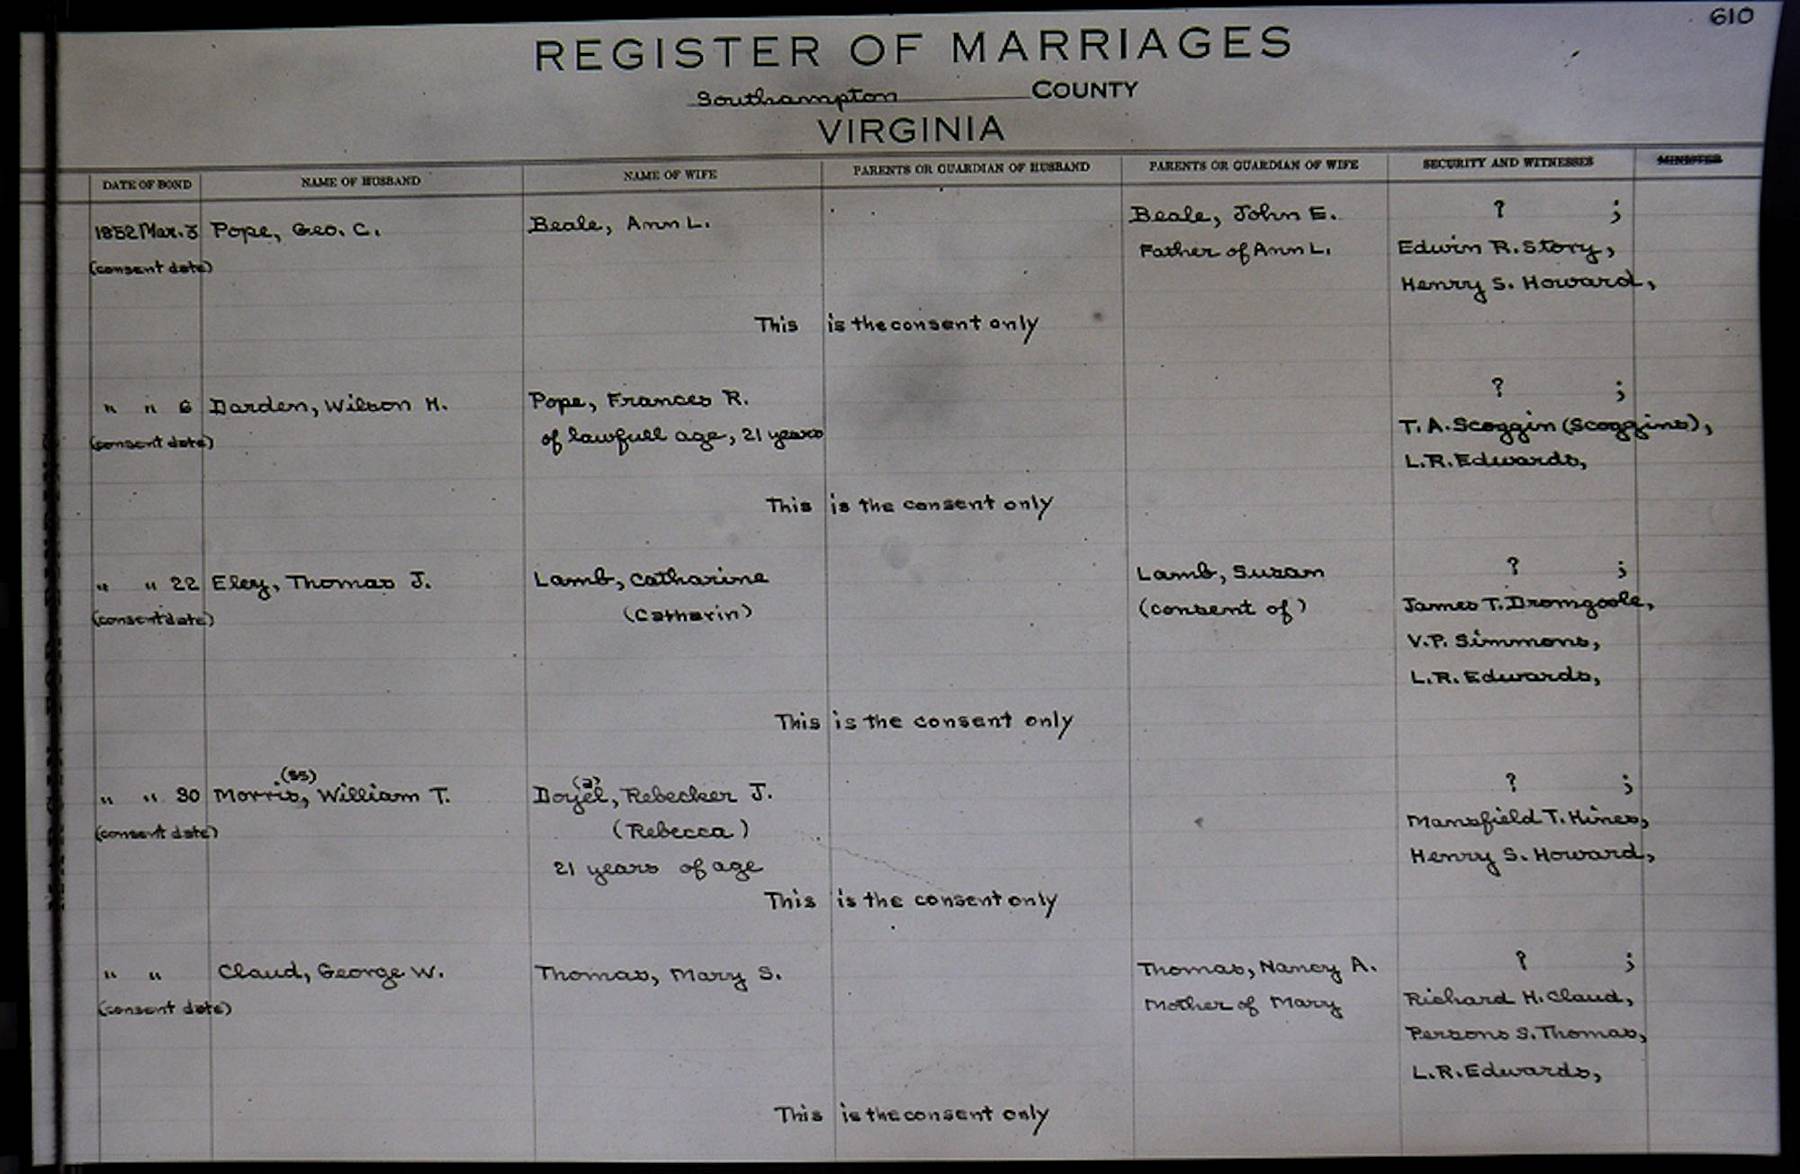 610
REGISTER OF MARRIAGES
Southampton COUNTY
VIRGINIA
DATE OF BOND NAME OF HUSBAND NAME OF WIFE PARENTS OR GUARDIAN OF HUSBAND PARENTS OR GUARDIAN OF WIFE SECURITY AND WITNESSES MINISTER
1852 Mar. 3 Pope, Geo. C. Beale, Ann L. Beale, John E. ? ;
(consent date) Father of Ann L. Edwin R. Story,
Henry S. Howard,
This is the consent only
" " 6 Darden, Wilson H. Pope, Frances R. ? ;
(consent date) of lawfull age, 21 years T. A. Scoggin (Scoggins),
L. R. Edwards,
This is the consent only
" " 22 Eley, Thomas J. Lamb, Catharine Lamb, Susan ? ;
(consent date) (Catharin) (consent of) James T. Dromgoole,
V. P. Simmons,
L. R. Edwards,
This is the consent only
(ss) (a)
" " 30 Morris, William T. Doyel, Rebecker J. ? ;
(consent date) (Rebecca) Mansfield T. Hines,
21 years of age Henry S. Howard,
This is the consent only
" " Claud, George W. Thomas, Mary S. Thomas, Nancy A. ? ;
(consent date) Mother of Mary Richard H. Claud,
Persons S. Thomas,
L. R. Edwards,
This is the consent only